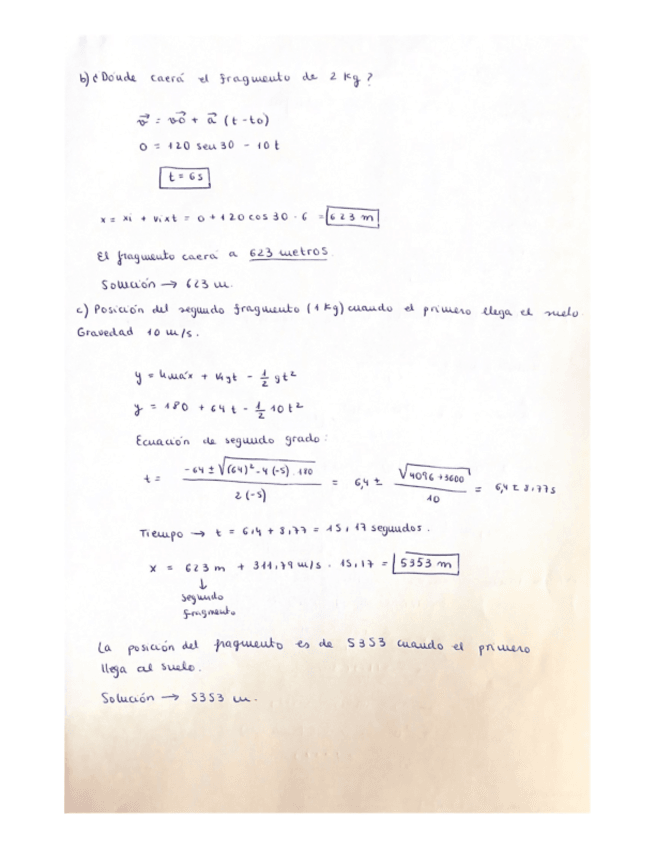 b) ¿Donde caerá el fragmento de 2 kg?
v⃗ = v⃗o + a⃗ (t - to)
0 = 120 sen 30 - 10t
t = 6s
x = xi + vixt = 0 + 120 cos 30 · 6 = 623 m
El fragmento caerá a 623 metros.
Solución → 623 m.
c) Posición del segundo fragmento (1 kg) cuando el primero llega el suelo.
Gravedad 10 m/s.
y = hmáx + viyt - 1/2 gt²
y = 180 + 64t - 1/2 10t²
Ecuación de segundo grado:
t = (-64 ± √((64)² - 4(-5)·180)) / 2(-5) = 6,4 ± √(4096 + 3600) / 10 = 6,4 ± 8,77s
Tiempo → t = 6,4 + 8,77 = 15,17 segundos.
x = 623 m + 311,79 m/s · 15,17 = 5353 m
↓
segundo
fragmento
La posición del fragmento es de 5353 cuando el primero
llega al suelo.
Solución → 5353 m.